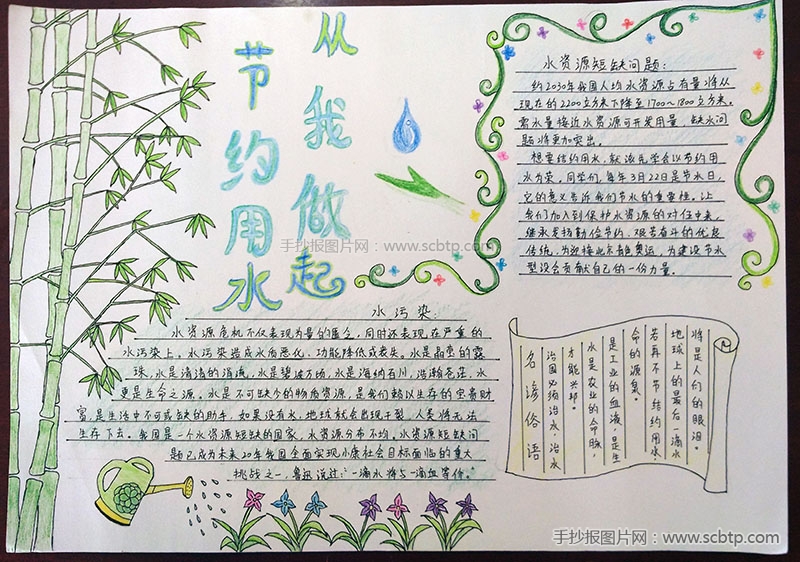 从我做起
节约用水
水资源短缺问题：
约2030年我国人均水资源占有量将从
现在的2200立方米下降至1700～1800立方米。
需水量接近水资源可开发用量，缺水问
题将更加突出。
想要结约用水，就该先学会以节约用
水为荣。同学们，每年3月22日是节水日，
它的意义告诉我们节水的重要性。让
我们加入到保护水资源的对伍中来，
继承发扬勤俭节约、艰苦奋斗的优良
传统，为迎接北京奥运，为建设节水
型没会贡献自己的一份力量。
水污染：
水资源危机不仅表现为量的匮乏，同时还表现在严重的
水污染上。水污染造成水质恶化，功能降低或丧失。水是晶莹的露
珠，水是清清的消流，水是碧波万顷，水是海纳百川，浩瀚苍茫，水
更是生命之源。水是不可缺个的物质资源，是我们赖以生存的宝贵财
富，是生活中不可或缺的助手。如果没有水，地球就会出现干裂，人类将无法
生存下去。我国是一个水资源短缺的国家，水资源分布不均。水资源短缺问
题已成为未来20年我国全面实现小康社会目标面临的重大
挑战之一，鲁迅说过：“一滴水将与一滴血等价。”
名谚俗语
治国必须治水，治水
才能兴邦。
水是农业的命脉，
是工业的血液，是生
命的源泉。
若再不节结约用水，
地球上的最后一滴水
将是人们的眼泪。
手抄报图片网：www.scbtp.com
手抄报图片网：www.scbtp.com